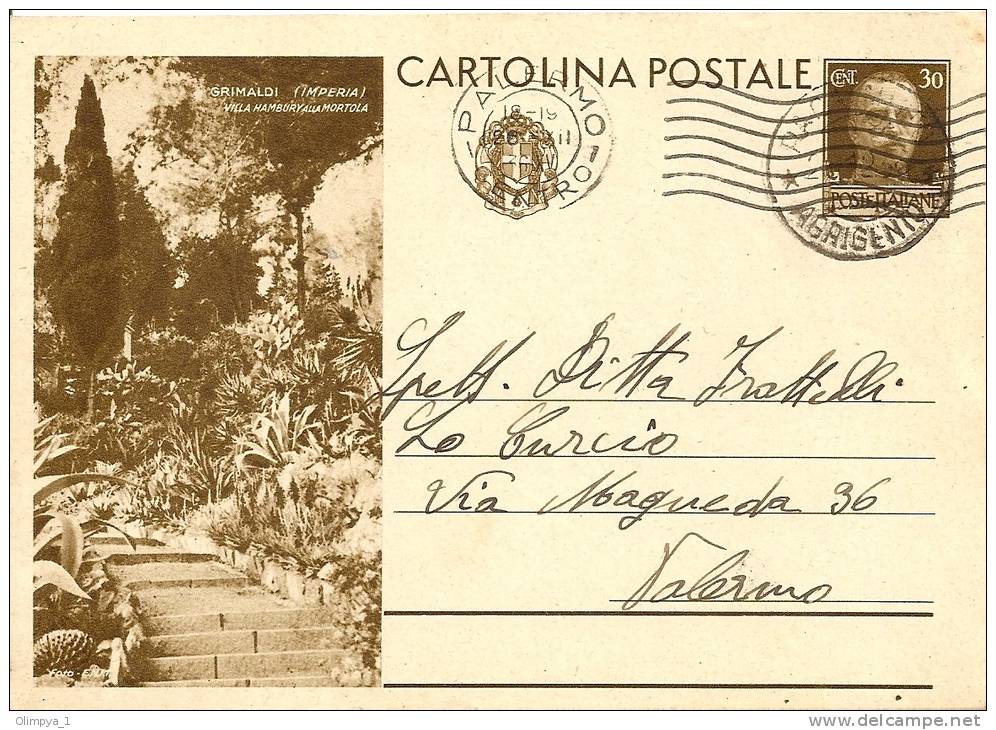 GRIMALDI (IMPERIA)
VILLA HAMBURY ALLA MORTOLA
Foto - E.N.I.T.
CARTOLINA POSTALE
CENT. 30
POSTE ITALIANE
PALERMO
18-19
CENTRO
AGRIGENTO
Spett. Ditta Fratelli
Lo Curcio
Via Maqueda 36
Palermo
Olimpya_1
www.delcampe.net